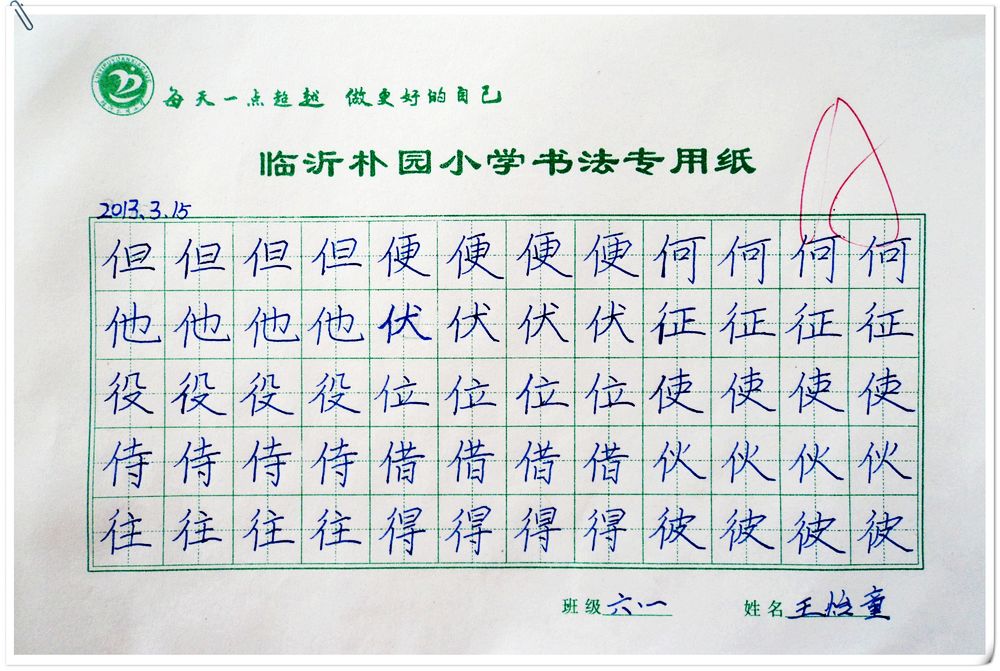 每天一点超越 做更好的自己
临沂朴园小学书法专用纸
2013.3.15
但但但但便便便便何何何何
他他他他伏伏伏伏征征征征
役役役役位位位位使使使使
侍侍侍侍借借借借伙伙伙伙
往往往往得得得得彼彼彼彼
班级六.一 姓名王怡童